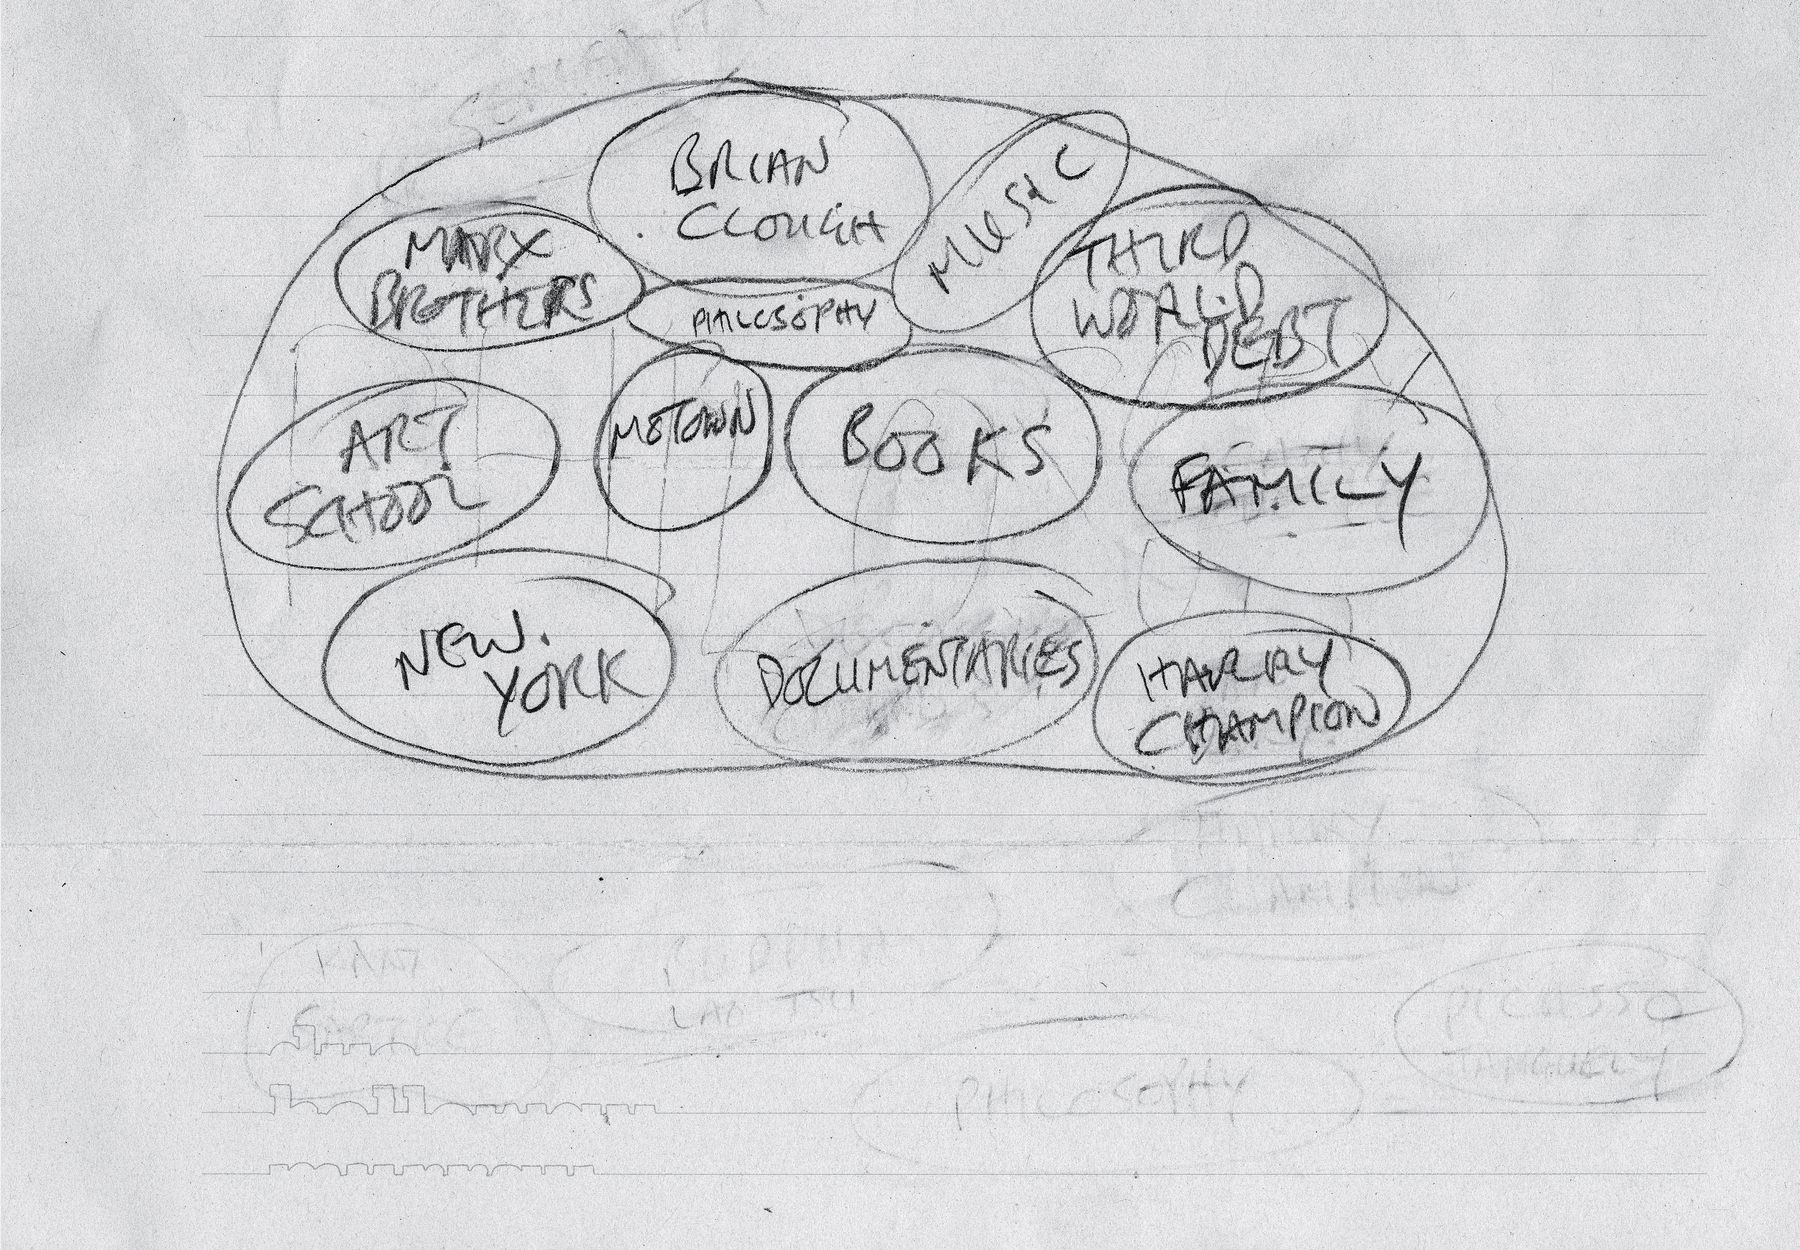 BRIAN
CLOUGH
MUSIC
MARX
BROTHERS
THIRD
WORLD
DEBT
PHILOSOPHY
ART
SCHOOL
MOTOWN
BOOKS
FAMILY
NEW.
YORK
DOCUMENTARIES
HARRY
CHAMPION
HARRY
CHAMPION
KANT
SARTRE
BUDDHA
LAO TSU
PICASSO
TINGUELY
PHILOSOPHY